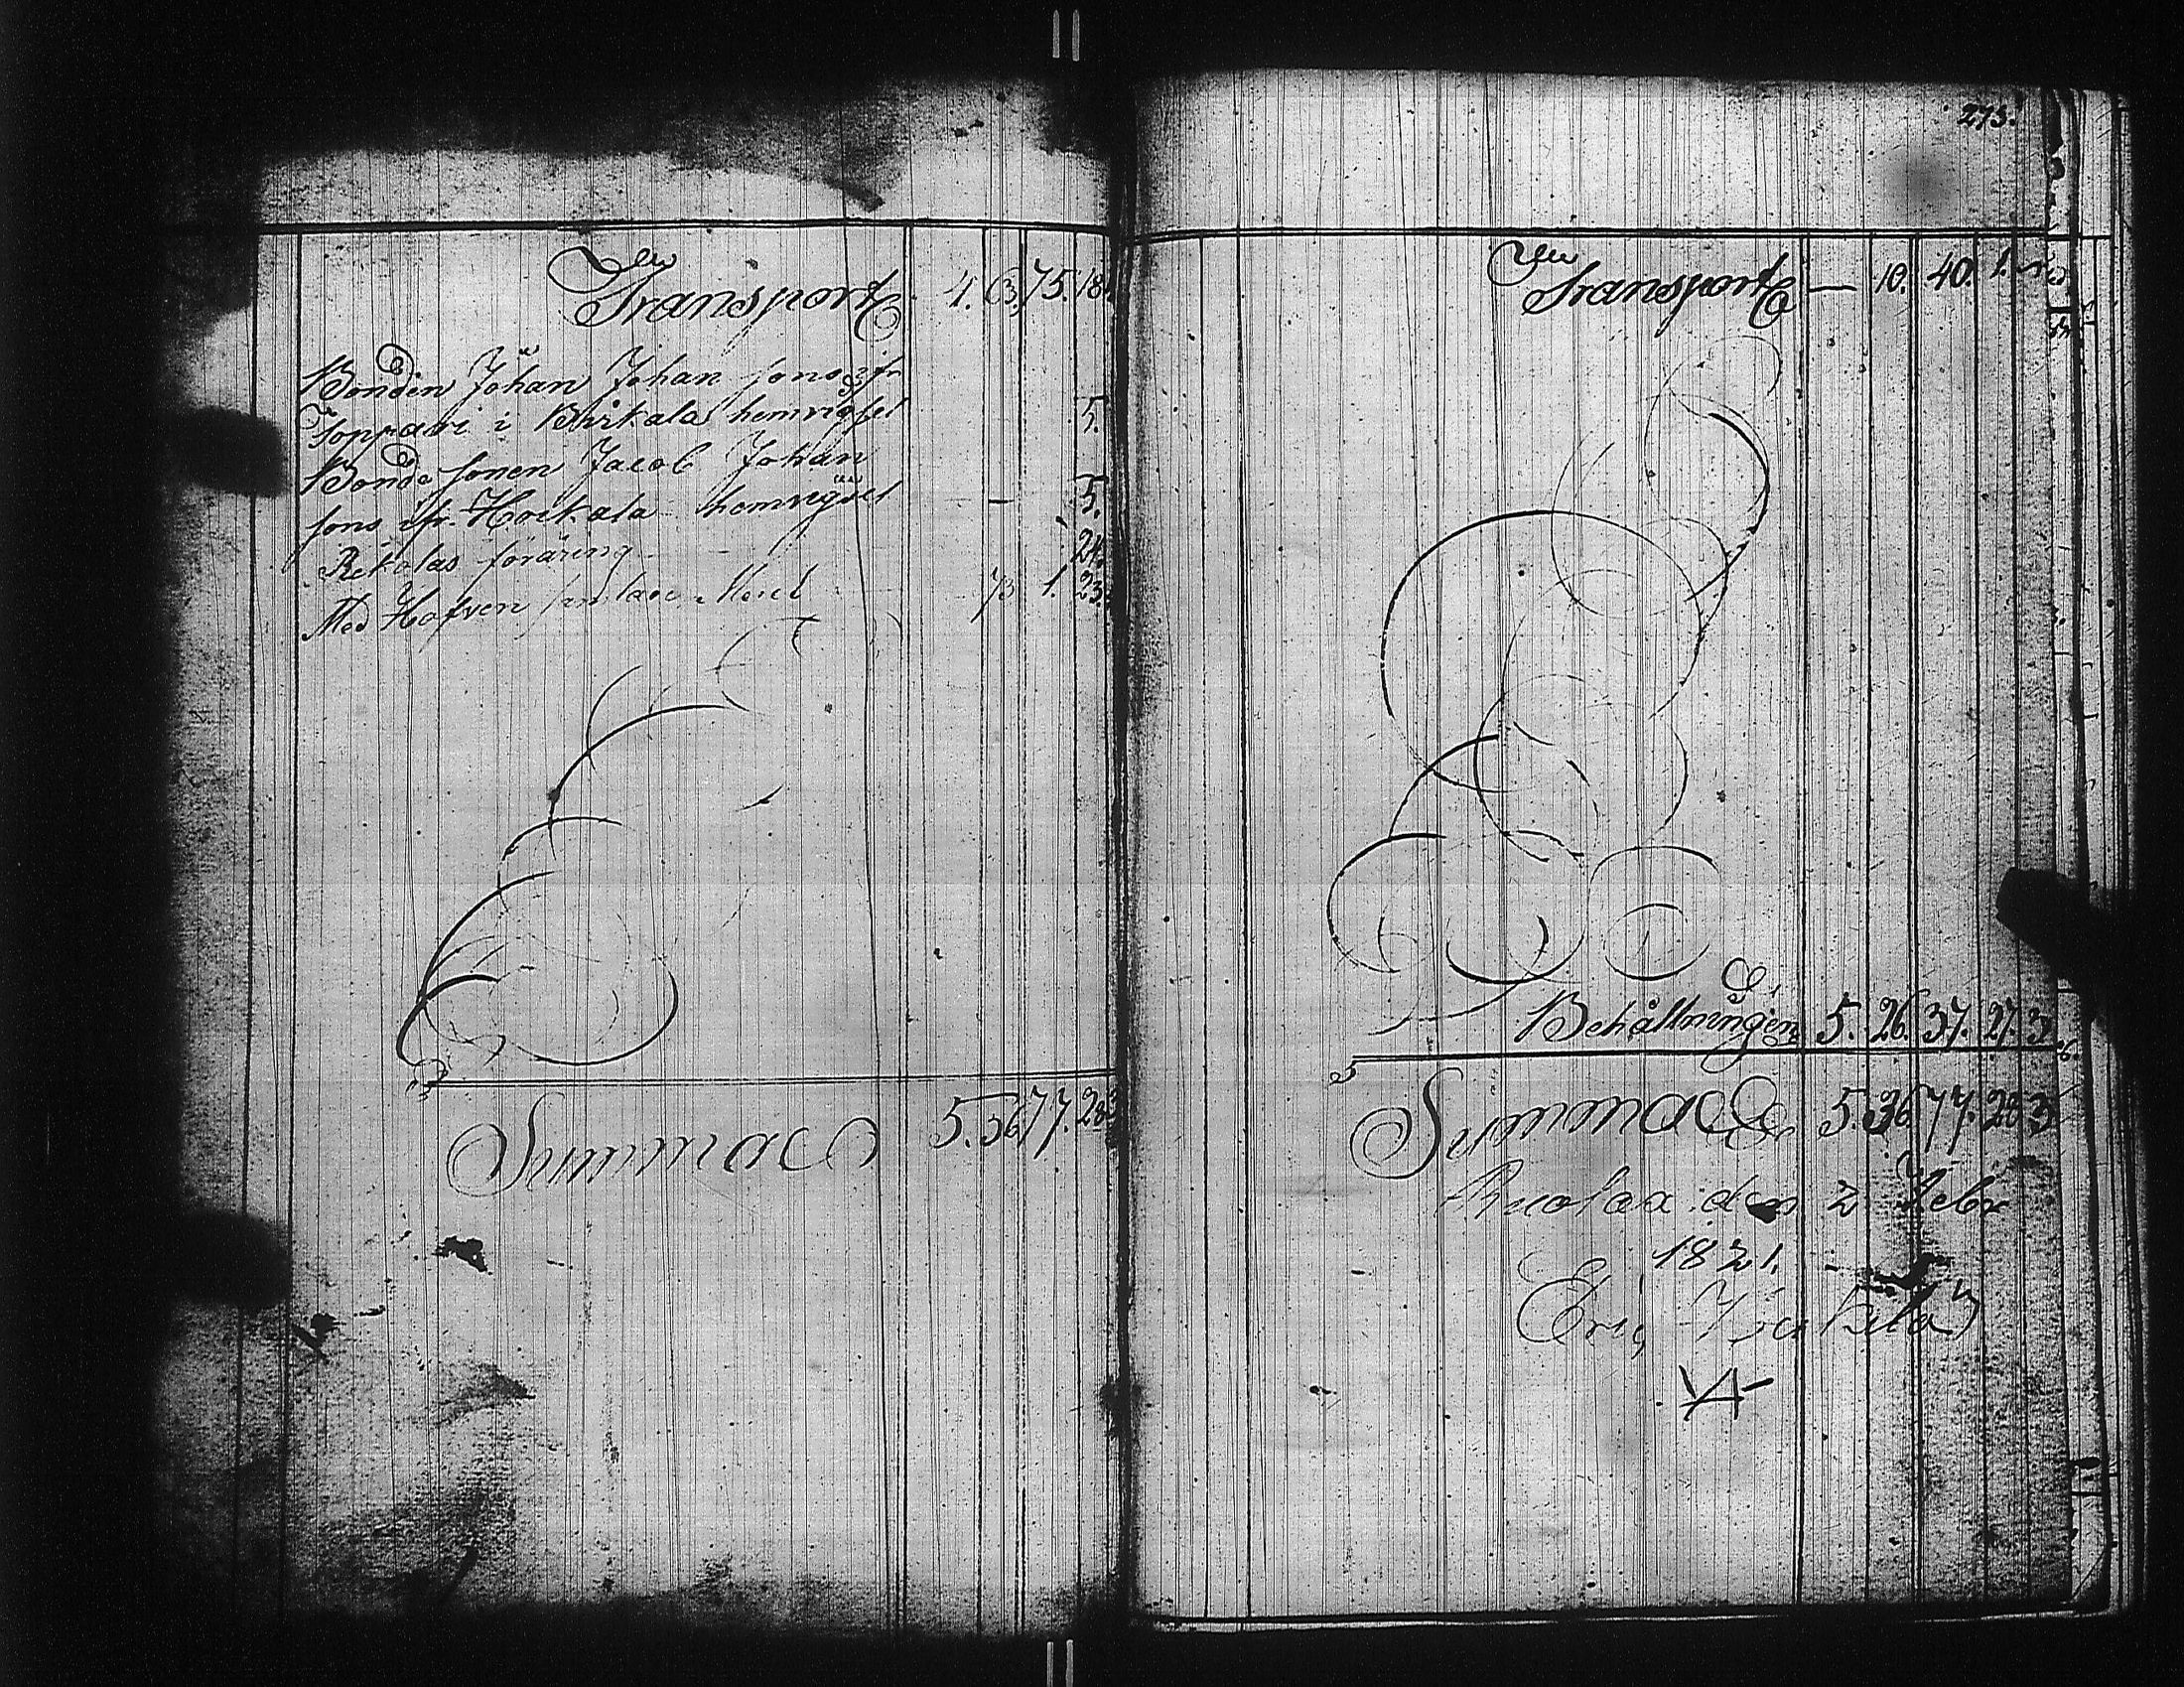 Transport 4. 63. 75. 18
Bonden Johan Johan sons ifr
Soppari i Kurkala hemvigsel 5.
Bonde sonen Jacob Johan
sons ifr. Hoikala hemvigsel — 5.
Rekolas föräring 24.
Med Hafven 73 1. 23.
Summa 5. 36. 77. 28 3
273.
Transport — 10. 40. 1. —
Behållningen 5. 26. 37. 27. 3
Summa 5. 36 77. 28 3
den 2 Febr
1821.
Eric